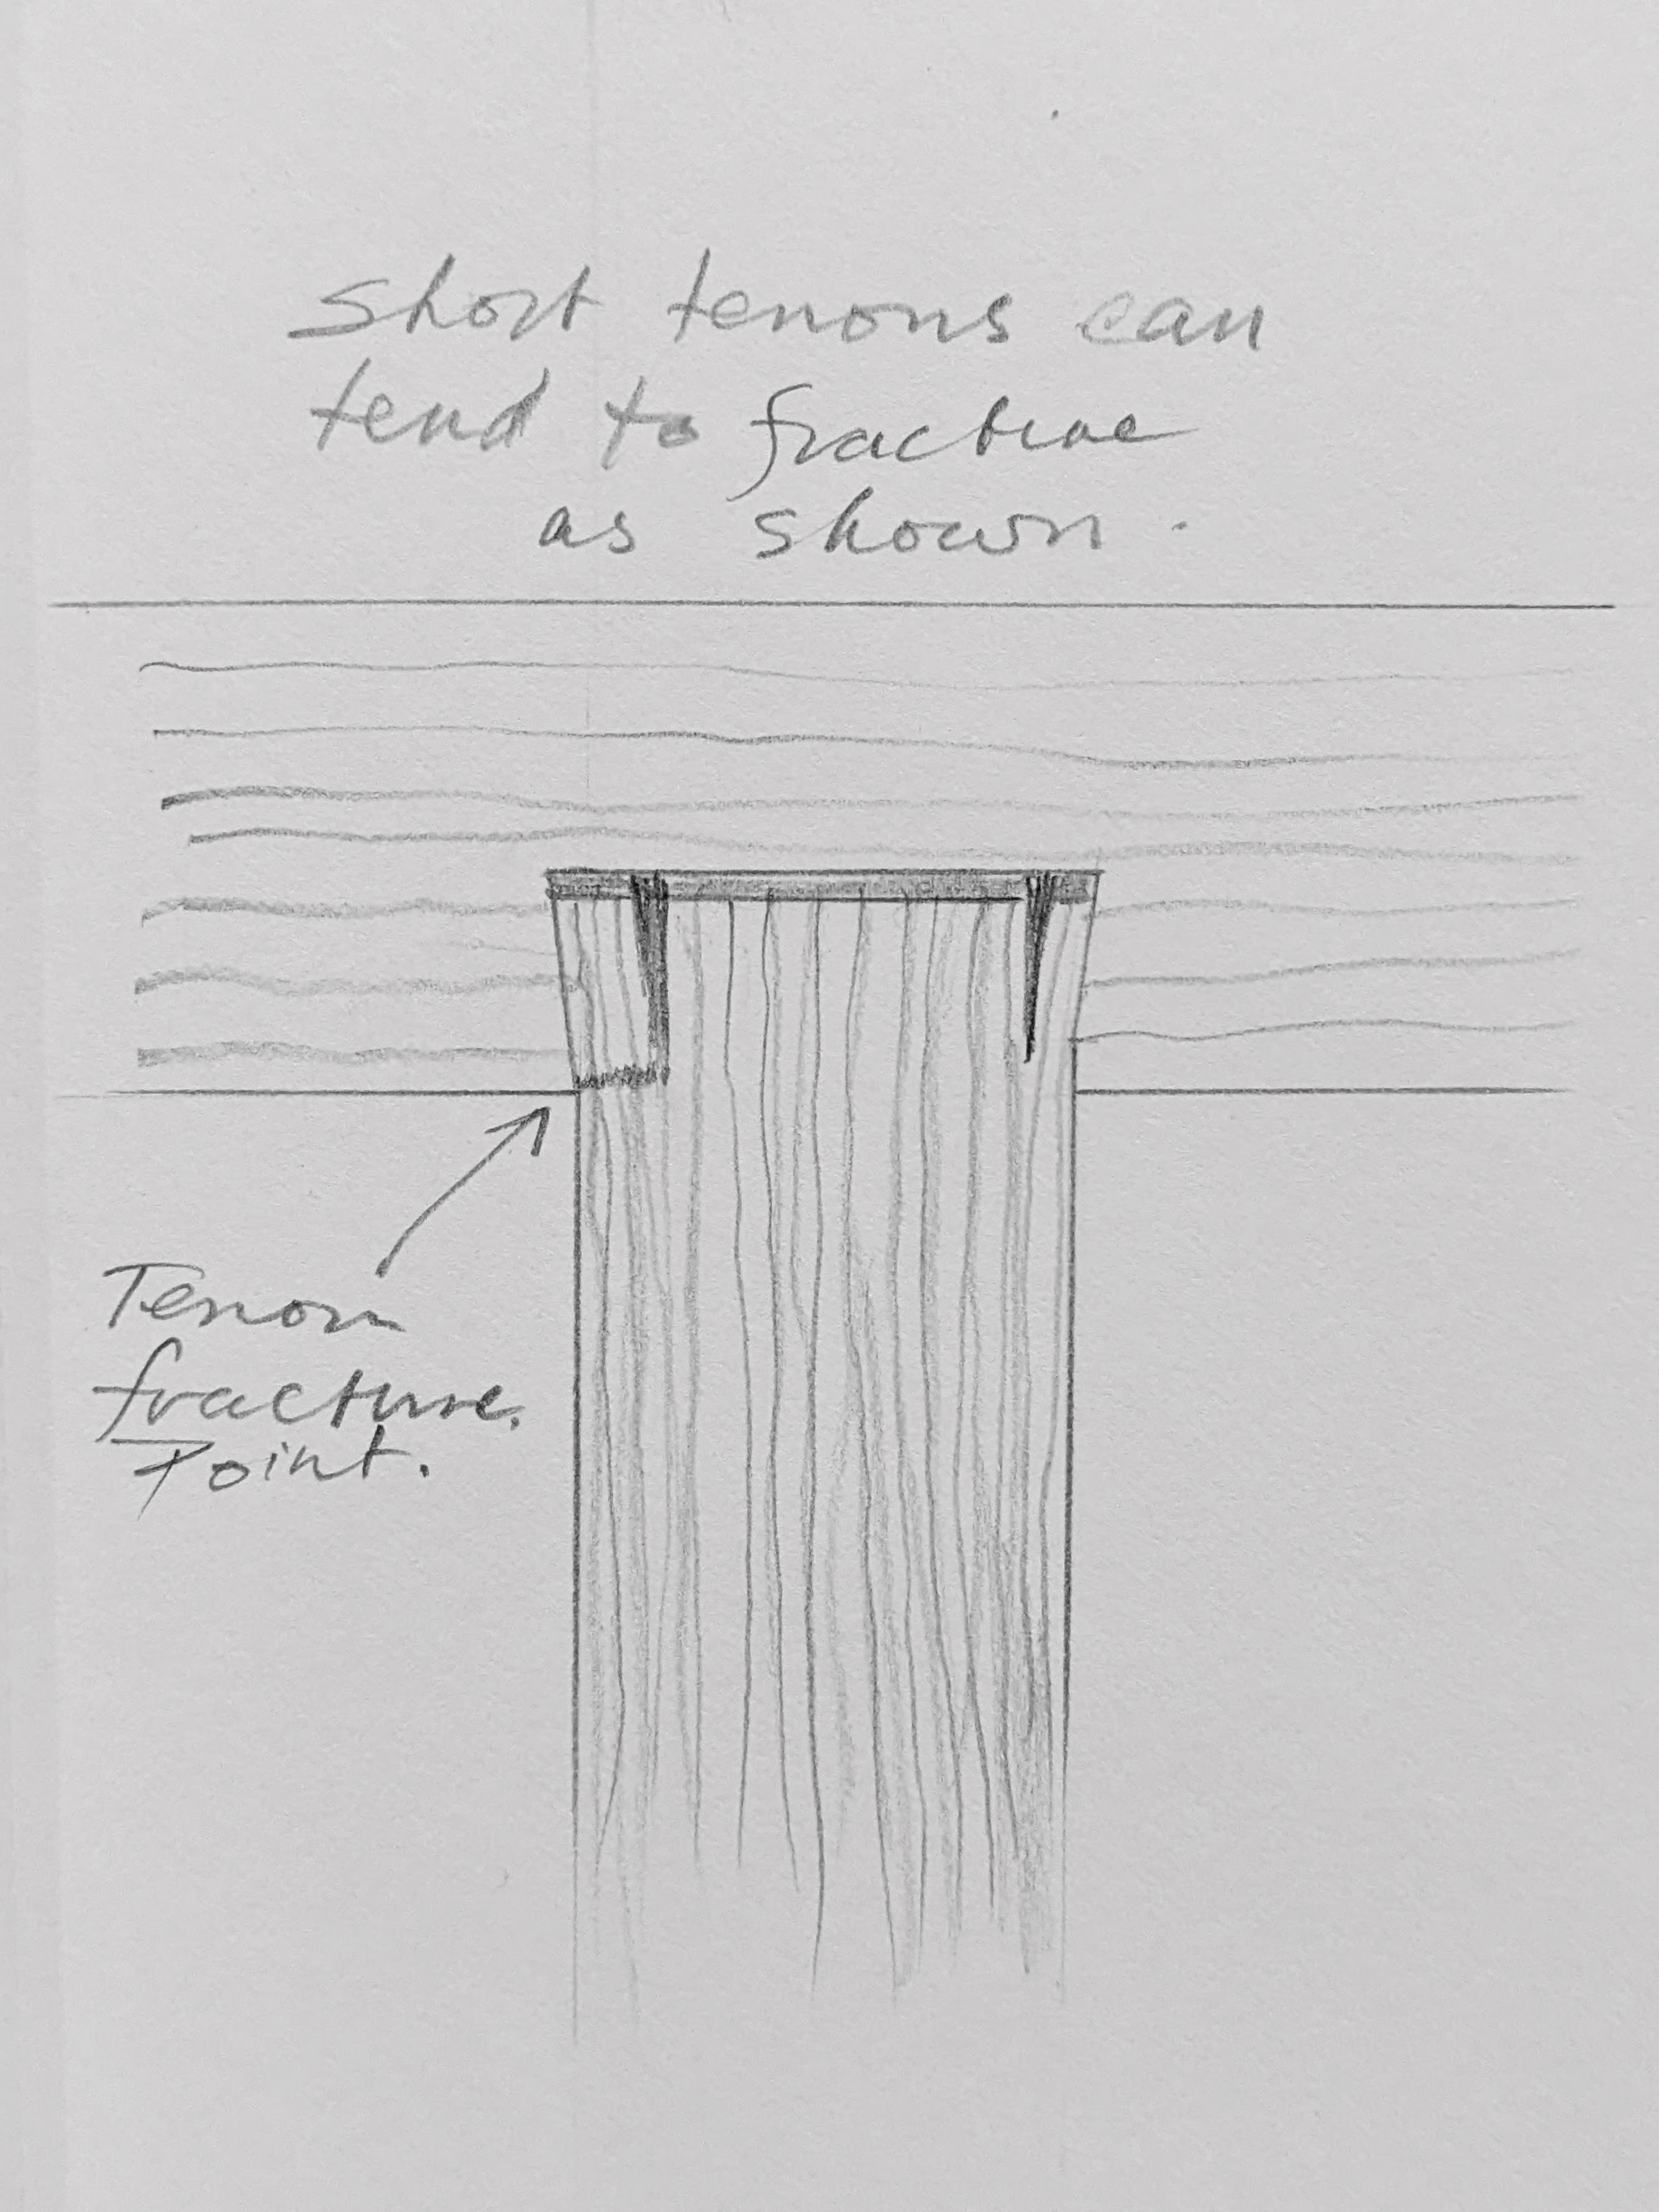 Short tenons can
tend to fracture
as shown.
Tenon
fracture.
Point.